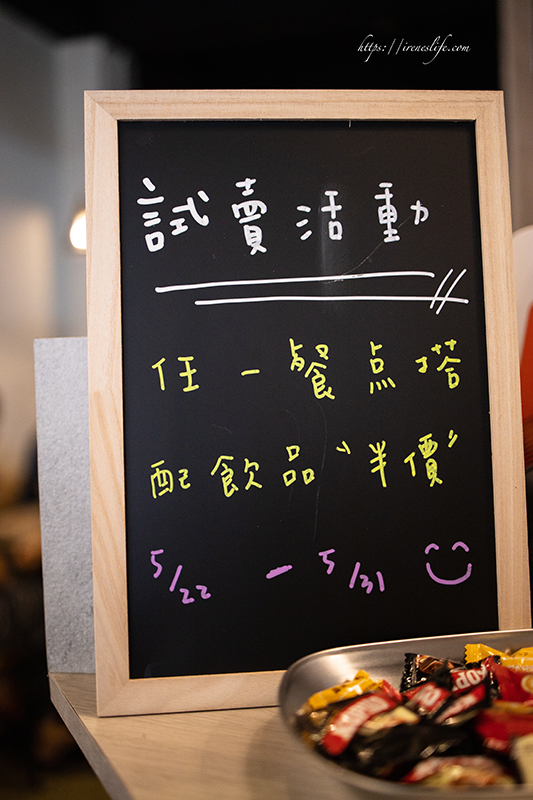 https://ireneslife.com
試賣活動
任一餐点塔
配飲品〝半價〞
5/22 - 5/31